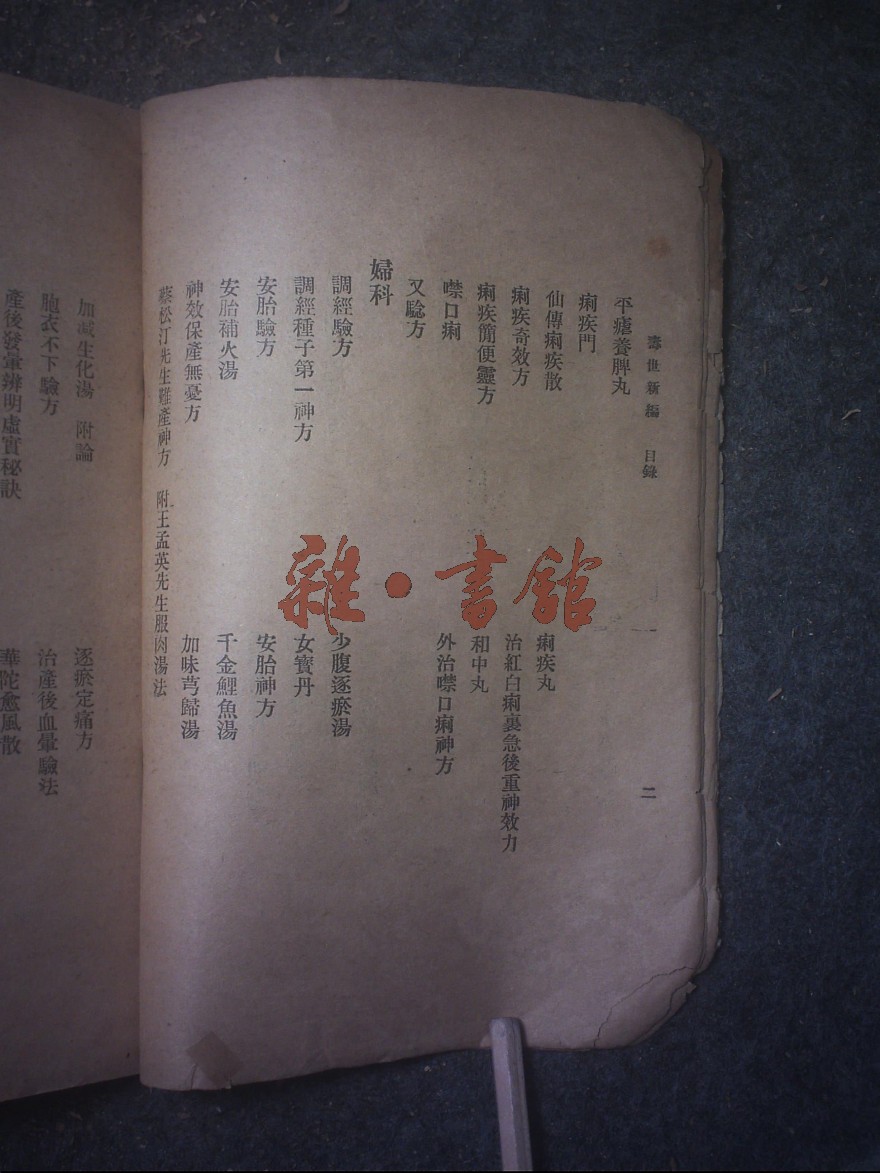 壽世新編 目錄 二
平瘧養脾丸
痢疾門
仙傳痢疾散 痢疾丸
痢疾奇效方 治紅白痢裏急後重神效力
痢疾簡便靈方 和中丸
噤口痢 外治噤口痢神方
又騐方
婦科
調經驗方 少腹逐瘀湯
調經種子第一神方 女寶丹
安胎驗方 安胎神方
安胎補火湯 千金鯉魚湯
神效保產無憂方 加味芎歸湯
蔡松汀先生難產神方 附王孟英先生服肉湯法
加減生化湯 附論 逐瘀定痛方
胞衣不下驗方 治產後血暈驗法
產後發暈辨明虛實秘訣 華陀愈風散
雜·書館